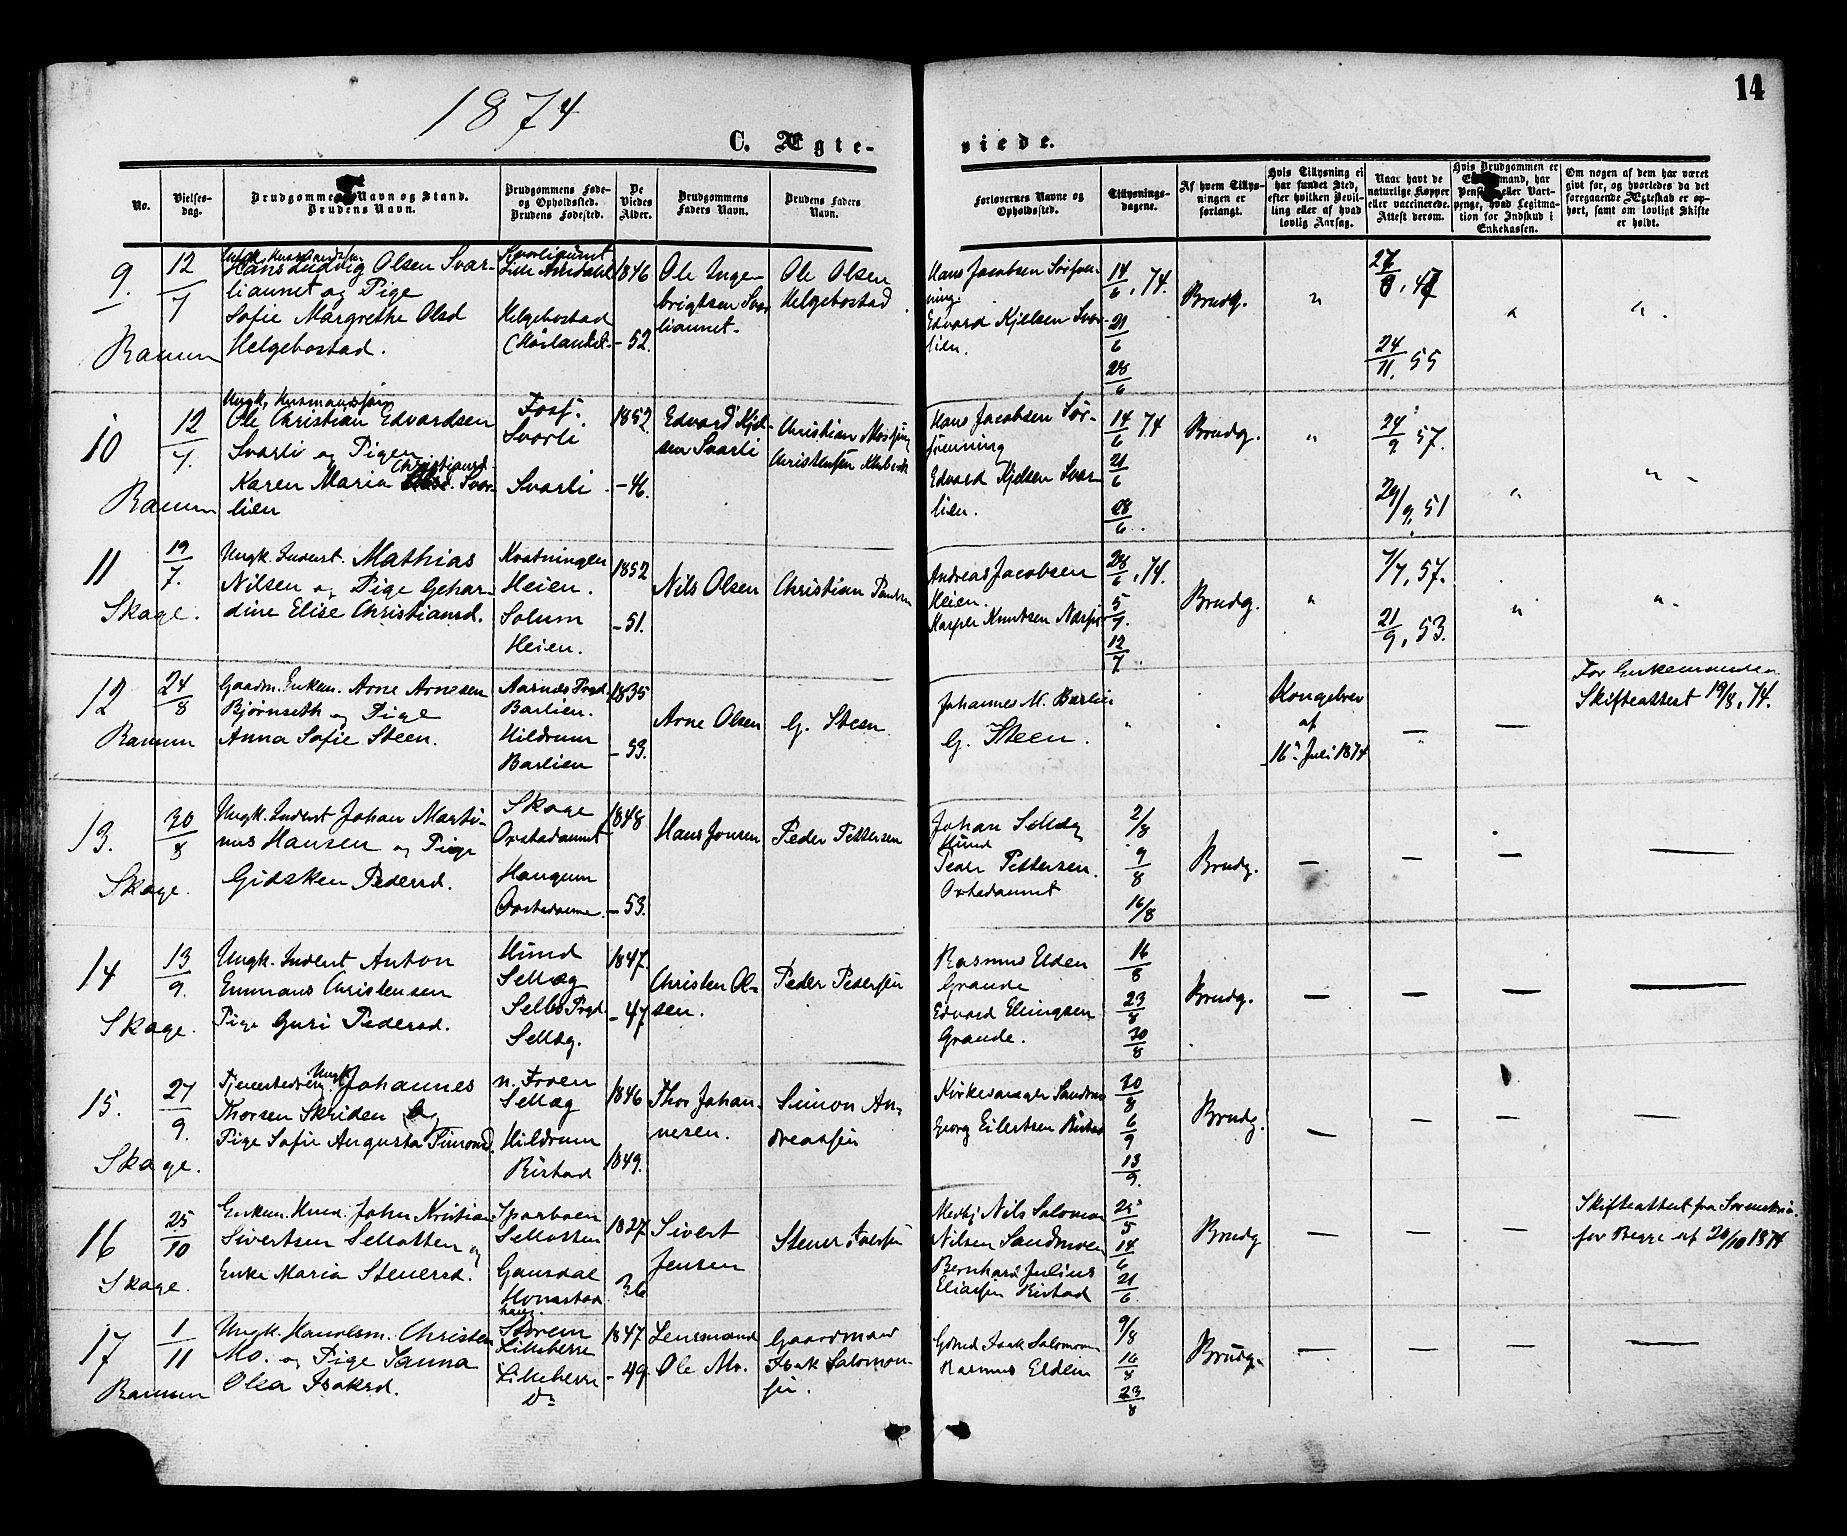 14
1874
C. Ægte-
viede.
No.
Vielses-
dag.
Brudgommens Navn og Stand.
Brudens Navn.
Brudgommens Føde-
og Opholdssted.
Brudens Fødested.
De
Viedes
Alder.
Brudgommens
Faders Navn.
Brudens Faders
Navn.
Forlovernes Navne og
Opholdssted.
Tillysnings-
dagene.
Af hvem Tillys-
ningen er
forlangt.
Hvis Tillysning ei
har fundet Sted,
efter hvilken Bevil-
ling eller af hvad
lovlig Aarsag.
Naar havt de
naturlige Kopper
eller vaccinerede.
Attest derom.
Hvis Brudgommen er
Enkemand, har
Pension eller Vart-
penge, hvad Legitima-
tion for Indskud i
Enkekassen.
Om nogen af dem har været
gift før, og hvorledes da det
foregaaende Ægteskab er op-
hørt, samt om lovligt Skifte
er holdt.
9.
12/7
Ranum
Hans Ludvig Olsen Svar-
liaunet og Pige
Sofie Margrethe Olsd
Helgebostad.
Helgebostad
1846
- 52.
Ole Inge-
brigtsen Svar
liaunet.
Ole Olsen
Helgebostad
Hans Jacobsen Sørfen-
ning.
Edvard Kjelsen Svar-
lien.
14/6, 74.
21/6
28/6
Brudg.
24/11, 55
10
12/7
Ranum
Ungk. Husmandssøn
Ole Christian Edvardsen
Svarli og Pigen
Karen Maria Christiansd. Svar-
lien
Fosl.
Svarli
Svarli
1852.
- 46.
Edvard Kjel-
sen Svarli
Christian
Christensen
Hans Jacobsen Sør-
fenning
Edvard Kjelsen Svar-
lien.
14/6 74
21/6
28/6
Brudg.
24/9 57.
29/9, 51
11
19/7.
Skage.
Ungk. Inderst. Mathias
Nilsen og Pige Gehar-
dine Elise Christiansd.
Kvatningen
Heien.
Solum
Heien.
1852
- 51.
Nils Olsen
Christian
Andreas Jacobsen
Heien.
Knutsen
28/6, 74.
5/7.
12/7
Brudg.
7/7, 57.
21/9, 53.
12
24/8
Ranum
Gaardm. Enkem. Arne Arnesen
Bjørnseth og Pige
Anna Sofie Steen.
Aarnes Prgd
Barlien.
Hildrum
Barlien
1835
- 53.
Arne Olsen
G. Steen.
Johannes M. Barlie
G. Steen.
Kongebrev
af
16 Juli 1874
For Enkemanden
Skifteattest 19/8, 74.
13.
30/8
Skage.
Ungk. Inderst Johan Marti-
nus Hansen og Pige
Gidsken Pedersd.
Skage
Haugum
1848
- 53.
Hans Jonsen
Peder Pettersen
Johan Sellæg
Hund
Peder Pettersen.
2/8
9/8
16/8
Brudg.
14
13/9.
Skage.
Ungk. Inderst Anton
Emmans Christensen
Pige Guri Pedersd.
Hund
Sellæg
Selbo Prgd.
Sellæg.
1847.
- 47.
Christen Ol-
sen.
Peder Pedersen
Rasmus Elden
Grande
Edvard Elingsen
Grande.
16/8
23/8
30/8
Brudg.
15.
27/9.
Skage.
Tjenestedreng Ungk Johannes
Thorsen Skriden og
Pige Sofie Augusta Simonsd.
n. Froen
Sellæg
Hildrum
Ristad
1846
1849.
Thor Johan-
nesen.
Simon An-
dreassen
Kirkesanger Sandmo
Georg Eilertsen Ristad
30/8
6/9
13/9.
Brudg.
16
25/10
Skage.
Enkem. Husm. John Kristian
Sivertsen Sellotten og
Enke Maria Stenersd.
Sparboen
Sellotten
1827
36
Sivert
Jensen
Stener
Nils Salomon
Nilsen Sandmoen
Bernhard Julius
Eliassen Ristad
14/6
21/6.
Brudg
Skifteattest fra Sorenskriv.
for Begge af 20/10 1874
17
1/11
Ranum
Ungk. Handelsm. Christen
Mo. og Pige Sanna
Olea Isaksd.
Lilleberre
Lilleberre
Do
1847
- 49.
Lensmand
Ole Mo.
Gaardmand
Isak Salomon-
sen.
Isak Salomon
Rasmus Elden
9/8
16/8
23/8
Brudg.